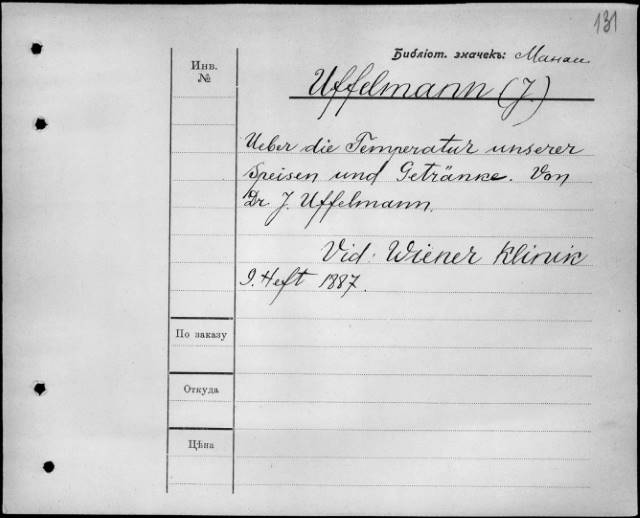 131
Библіот. значекъ: Манас
Инв.
№
Uffelmann (J.)
Ueber die Temperatur unserer
Speisen und Getränke. Von
Dr J. Uffelmann.
Vid: Wiener Klinik
9. Heft 1887.
По заказу
Откуда
Цѣна